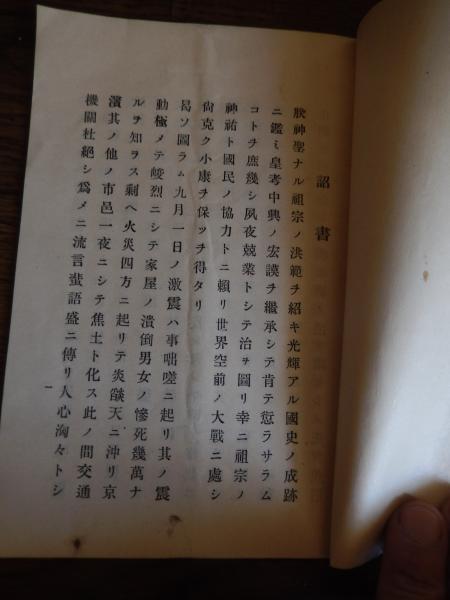 詔書
朕神聖ナル祖宗ノ洪範ヲ紹キ光輝アル國史ノ成跡
ニ鑑ミ皇考中興ノ宏謨ヲ繼承シテ肯テ愆ラサラム
コトヲ庶幾シ夙夜兢業トシテ治ヲ圖リ幸ニ祖宗ノ
神祐ト國民ノ協力トニ賴リ世界空前ノ大戰ニ處シ
尙克ク小康ヲ保ツヲ得タリ
曷ソ圖ラム九月一日ノ激震ハ事咄嗟ニ起リ其ノ震
動極メテ峻烈ニシテ家屋ノ潰倒男女ノ慘死幾萬ナ
ルヲ知ラス剩ヘ火災四方ニ起リテ炎燄天ニ冲リ京
濱其ノ他ノ市邑一夜ニシテ焦土ト化ス此ノ間交通
機關杜絕シ爲メニ流言蜚語盛ニ傳リ人心洶々トシ
一